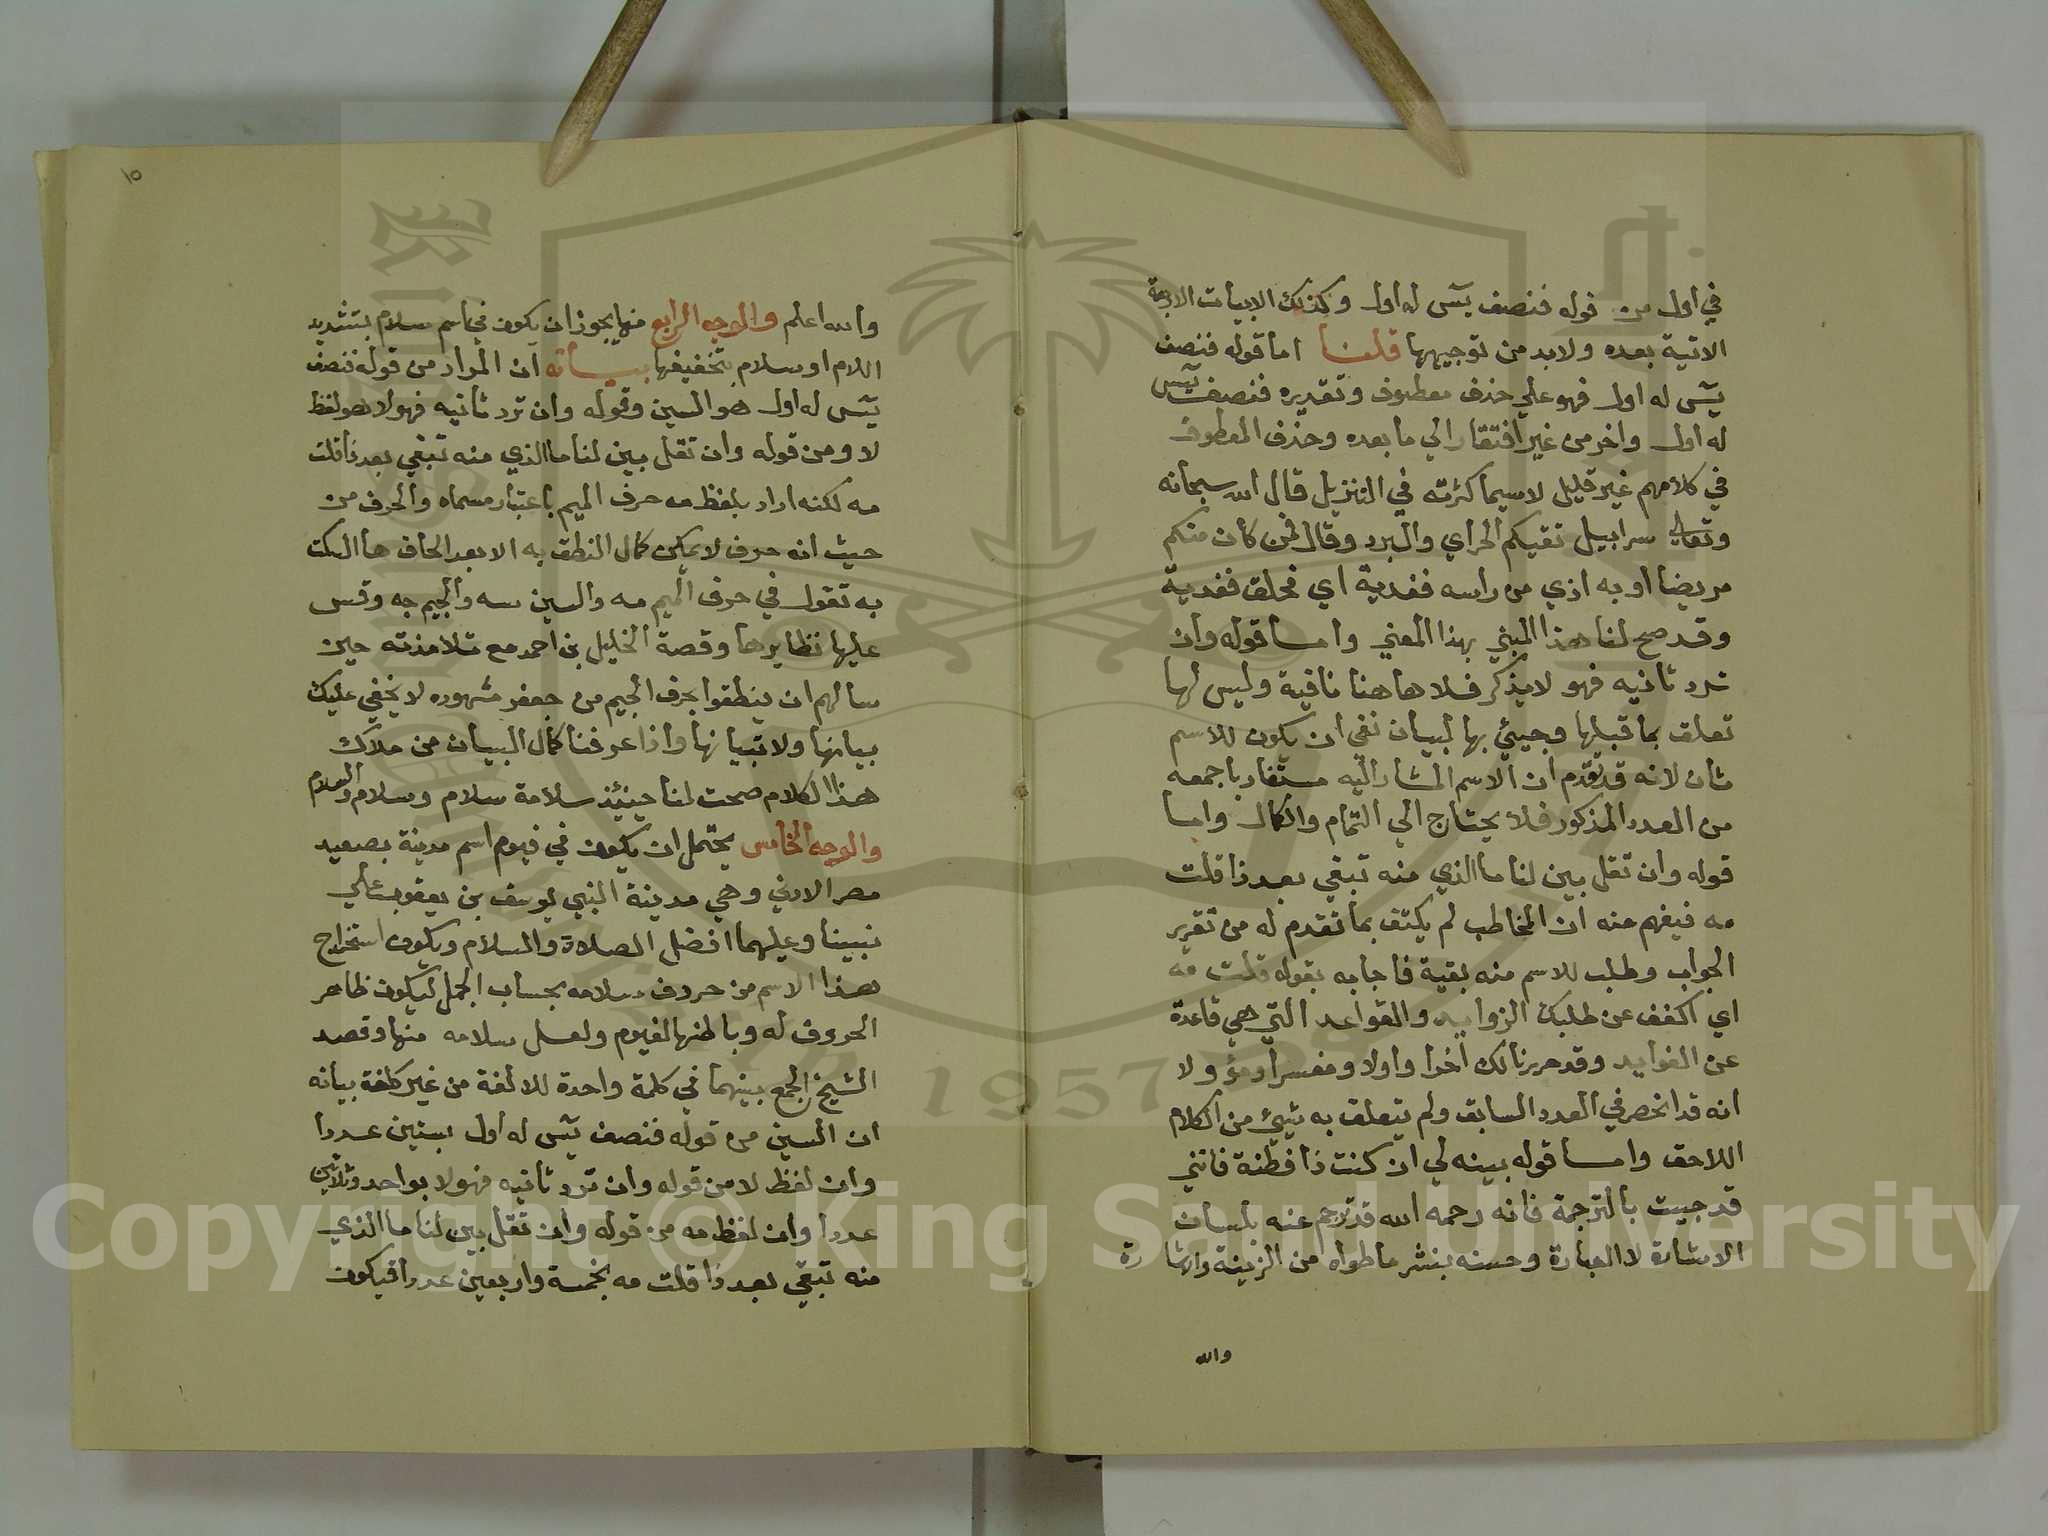 في اول من قوله فنصف يٓس له اول وكذلك الابيات الاربعة
الاتية بعده ولابد من توجيهها قلنا اما قوله فنصف
يٓس له اول فهو علي حذف معطوف وتقديره فنصف يٓس
له اول واخر من غير افتقار الي ما بعده وحذف المعطوف
في كلامهم غير قليل لاسيما كثرته في التنزيل قال الله سبحانه
وتعالي سرابيل تقيكم الحر اي والبرد وقال فمن كان منكم
مريضا او به اذي من راسه ففدية اي فحلق ففدية
وقد صح لنا هذا المبني بهذا المعني واما قوله وان
ترد ثانيه فهو لا يذكر فلا هاهنا نافية وليس لها
تعلق بما قبلها وجيئ بها لبيان نفي ان يكون للاسم
ثان لانه قد تقدم ان الاسم المشار اليه مستفاد باجمعه
من العدد المذكور فلا يحتاج الي التمام والكمال واما
قوله وان تقل بين لنا ما الذي منه تبقي بعد ذا قلت
مه فيفهم منه ان المخاطب لم يكتف بما تقدم له من تقرير
الجواب وطلب للاسم منه بقية فاجابه بقوله قلت مه
اي اكفف عن طلبك الزوايد والقواعد التي هي قاعدة
عن الفوايد وقد حررنا لك اخرا واولا ومفسرا ومؤولا
انه قد انحصر في العدد السابق ولم يتعلق به شيئ من الكلام
اللاحق واما قوله بينه لي ان كنت ذا فطنة فانني
قد جيت بالترجمة فانه رحمه الله قد ترجم عنه بلسان
الاشارة لا العبارة وحسنه بنشر ما طواه من الزينة والشارة
والله
١٥
والله اعلم والوجه الرابع منها يجوز ان يكون في اسم سلام بتشديد
اللام او سلام بتخفيفها بيانه ان المراد من قوله فنصف
يٓس له اول هو السين وقوله وان ترد ثانيه فهو لا هو لفظ
لا ومن قوله وان تقل بين لنا ما الذي منه تبقي بعد ذا قلت
مه لكنه اراد بلفظ مه حرف الميم باعتبار مسماه والحرف من
حيث انه حرف لا يمكن كمال النطق به الا بعد الحاق ها السكت
به تقول في حرف الميم مه والسين سه والجيم جه وقس
عليها نظايرها وقصة الخليل بن احمد مع تلامذته حين
سالهم ان ينطقوا بحرف الجيم من جعفر مشهوره لا يخفي عليك
بيانها ولا تبيانها واذا عرفنا كمال البيان من ملاك
هذا الكلام صحت لنا حينئذ سلامة سلام وسلام والسلام
والوجه الخامس يحتمل ان يكون في فيوم اسم مدينة بصعيد
مصر الادني وهي مدينة النبي يوسف بن يعقوب علي
نبينا وعليهما افضل الصلاة والسلام ويكون استخراج
هذا الاسم من حروف سلامه بحساب الجمل ليكون ظاهر
الحروف له وباطنها لفيوم ولعل سلامه منها وقصد
الشيخ الجمع بينهما في كلمة واحدة للالفة من غير كلفة بيانه
ان السين من قوله فنصف يٓس له اول بستين عددا
وان لفظ لا من قوله وان ترد ثانيه فهو لا بواحد وثلاثين
عددا وان لفظ مه من قوله وان تقل بين لنا ما الذي
منه تبقي بعد ذا قلت مه بخمسة واربعين عددا فيكون
Copyright © King Saud University
1957